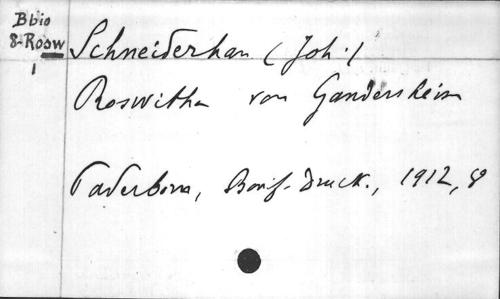 Bbio
8-Rosw
1
Schneiderhan (Joh.)
Roswitha von Gandersheim
Paderborn, Bonif-Druck., 1912, 8°